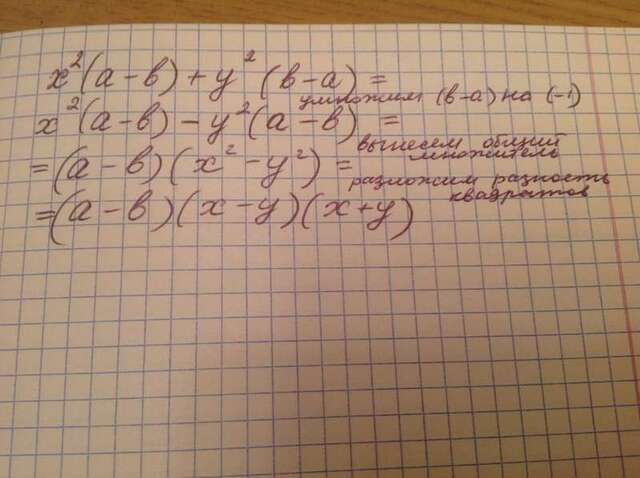 x²(a-в)+y²(в-a)=
умножим (в-a) на (-1)
x²(a-в)-y²(a-в)=
вынесем общий
множитель
=(a-в)(x²-y²)=
разложим разность
квадратов
=(a-в)(x-y)(x+y)